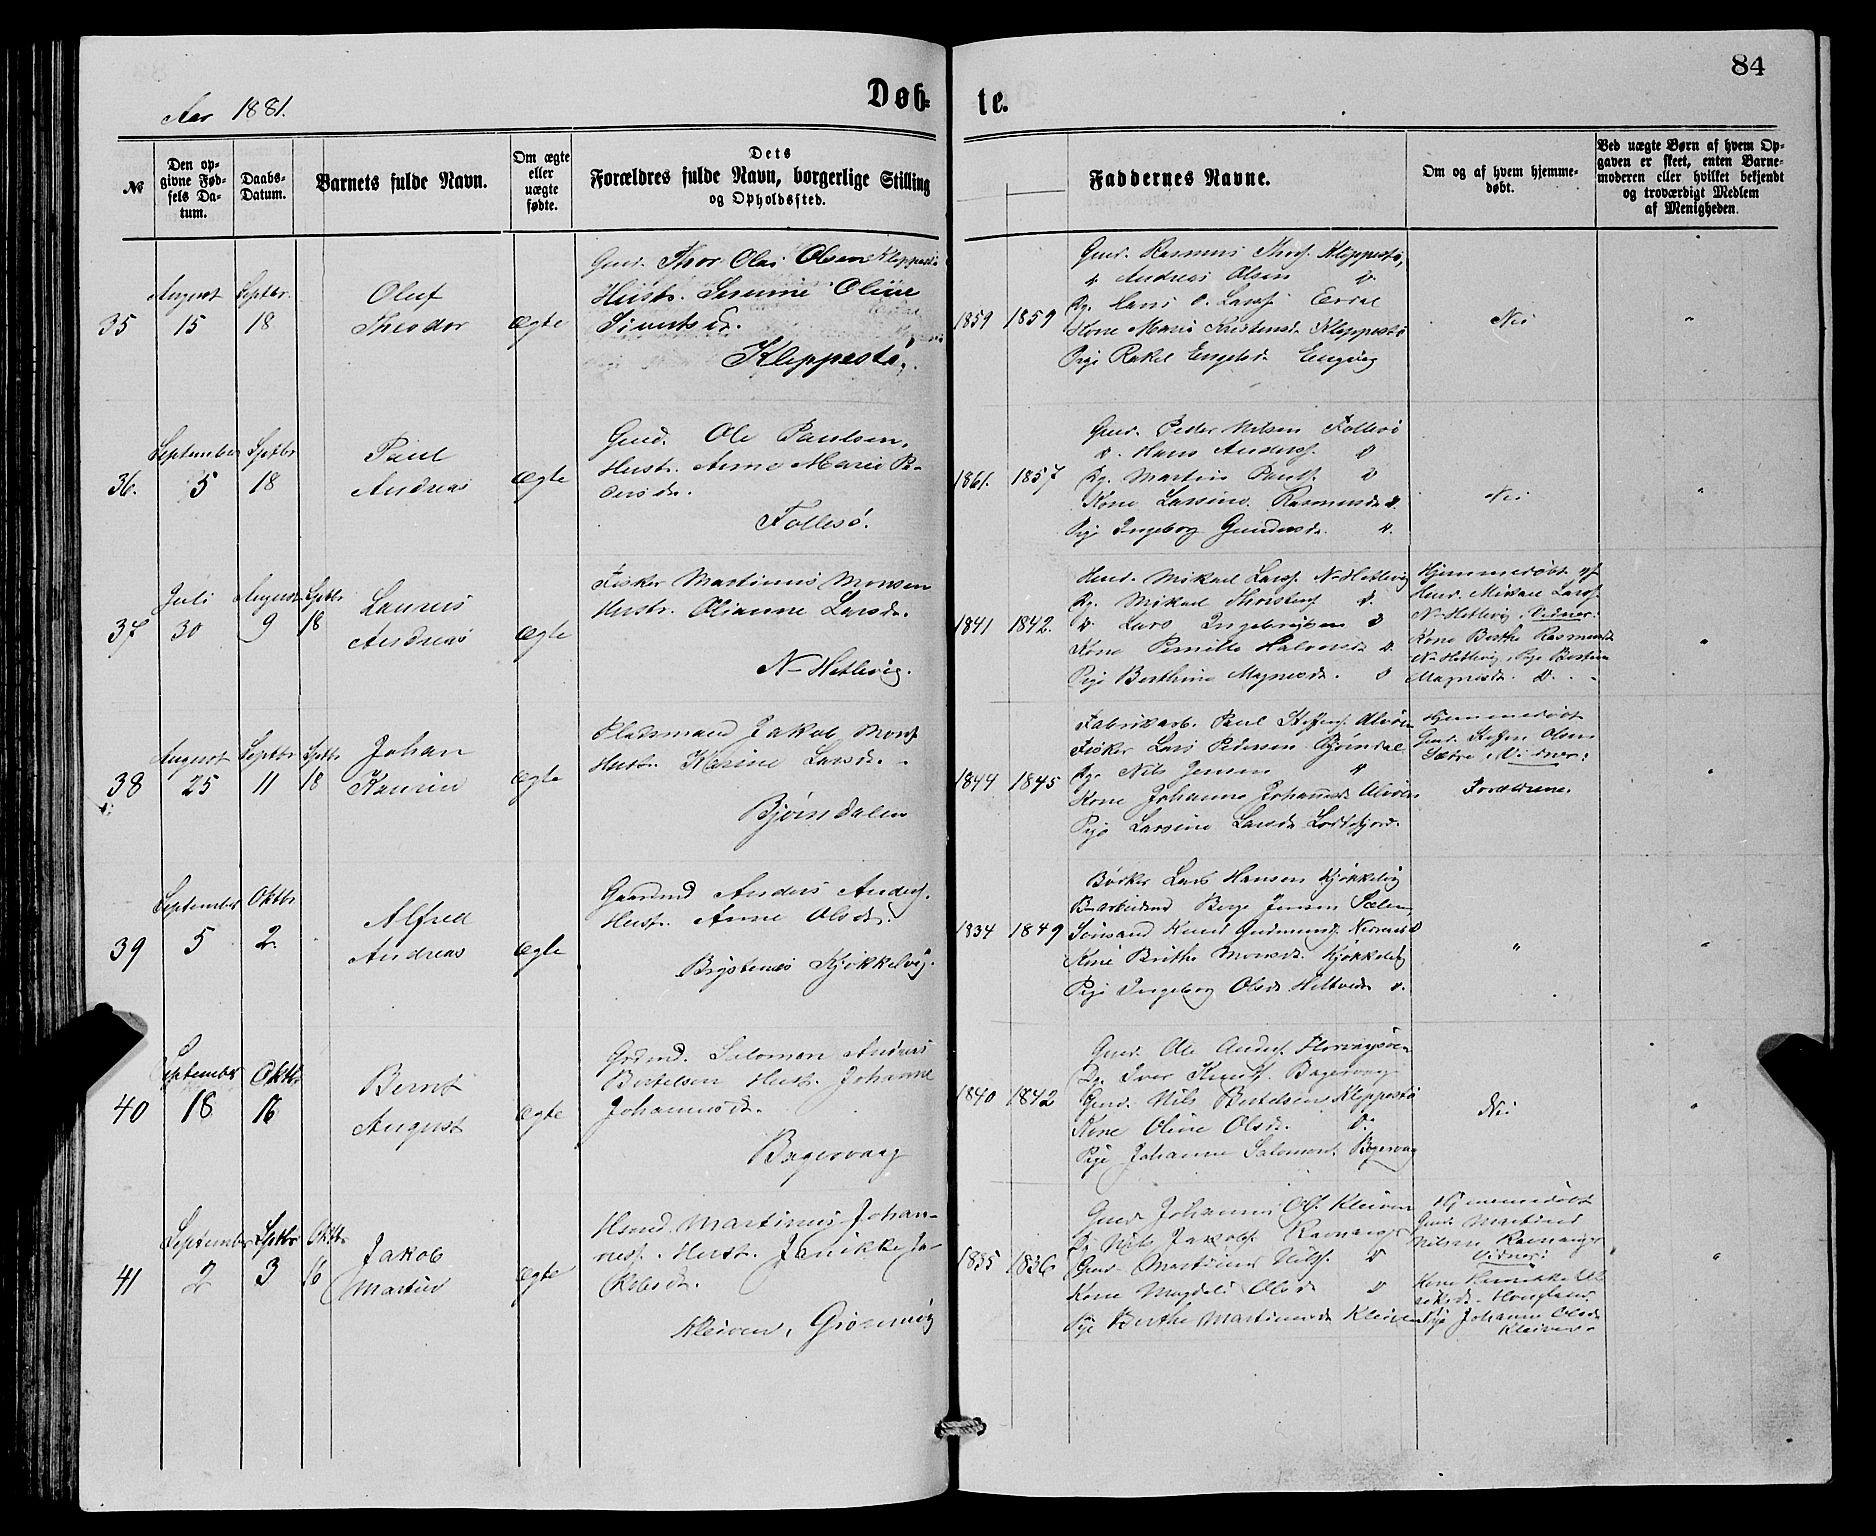 84
Aar 1881.
Døb-
te.
№
Den op-
givne Fød-
sels Da-
tum.
Daabs-
Datum.
Barnets fulde Navn.
Om ægte
eller
uægte
fødte.
Dets
Forældres fulde Navn, borgerlige Stilling
og Opholdssted.
Faddernes Navne.
Om og af hvem hjemme-
døbt.
Ved uægte Børn af hvem Op-
gaven er skeet, enten Barne-
moderen eller hvilket bekjendt
og troværdigt Medlem
af Menigheden.
35
August
15
Septbr.
18
Oluf
Theodor
Ægte
Gmd. Thor Olai Olsen Kleppestø
Hustr. Serine Oline
Sivertsd.
Kleppestø.
1859 1859
Gmd. Rasmus Thos. Kleppestø,
d. Andreas Olsen d.
Dg. Hans O. Larss.
Kone Marie Kristensd. Kleppestø
Pige Rakel Engelsd.
Nei
"
36.
September
5
Septbr
18
Paul
Andreas
Ægte
Gmd. Ole Paulsen,
Hustr. Anne Marie Pe-
dersdr.
Follesø.
1861. 1857
Gmd. Peder Nilsen Follesø
d. Hans Anders. d
Dg. Martin Pauls. d
Kone Lassine Rasmusd. d.
Pige Ingeborg Gundersd. d.
Nei
"
37
Juli
30
August
9
Septbr
18
Laurits
Andreas
Ægte
Fisker Martinus Monsen
Hustr. Olianne Larsd.
N- Hetlevig.
1841 1842.
Husd. Mikael Larss. N-Hetlevig
Dg. Mikael Thorstens. d.
d. Lars Ingebrigtsen d
Kone Pernille Halvorsd. d.
Pige Berthine Magnesd. d
Hjemmedøbt af
Husd. Mikael Larss.
N-Hetlevig, Vidner:
Kone Berthe Rasmusd.
N-Hetlevig, Pige Berthine
Magnesd. d.
"
38
August
25
Septbr
11
Septbr
18
Johan
Kaurin
Ægte
Pladsmand Jakob Mons.
Hustr. Karine Larsd.
Bjørndalen
1844 1845
Fabrikarb. Paul Steffens. Alvøen
Fisker Lars Pedersen Bjørndal
Dg. Nils Jensen d
Kone Johanne Johannesd. Alvøen
Pige Larsine Larsd. Loddefjord.
Hjemmedøbt
Gmd. Steffen Olsen
Vidner:
Forældrene.
"
39
September
5
Oktbr
2.
Alfred
Andreas
Ægte
Gaardmd Anders Anders.
Hustr. Anne Olsd.
Brystenes Kjøkkelvig.
1834 1849
Bødker Lars Hansen Kjøkkelvig
B-arbeidsmd Berge Jensen Sælen,
Knud Gudmunds.
Kone Brithe Monsd. Kjøkkelvig
Pige Ingeborg Olsd. d.
"
"
40
September
18
Oktbr
16
Bernt
August
Ægte
Grdmd. Salomon Andreas
Bertelsen Hust. Johanne
Johannesd.
Bagervaag
1840 1842
Gmd. Ole Anders. Florvaagøen
Dg. Iver Knuds. Bagervaag
Gmd. Nils Bertelsen Kleppestø
Kone Oline Olsd. d.
Pige Johanne Salomons. Bagervaag
Nei
"
41
September
2
Septbr
3
Oktbr
16
Jakob
Martin
Ægte
Husmd. Martinus Johan-
ness. Hust. Jannikke Ja-
kobsd.
Kleiven,
1835 1836
Gmd Johannes Ols. Kleiven
Dg. Nils Jakobs. Ravnanger
Gmd. Martinus Nils. d
Kone Magdeli Olsd. d
Pige Berthe Martinusd. Kleiven
Hjemmedøbt
Gmd. Martinus
Nilsen Ravnanger
Vidner:
Kone
Hougland
Pige Johanne Olsd.
Kleiven
"